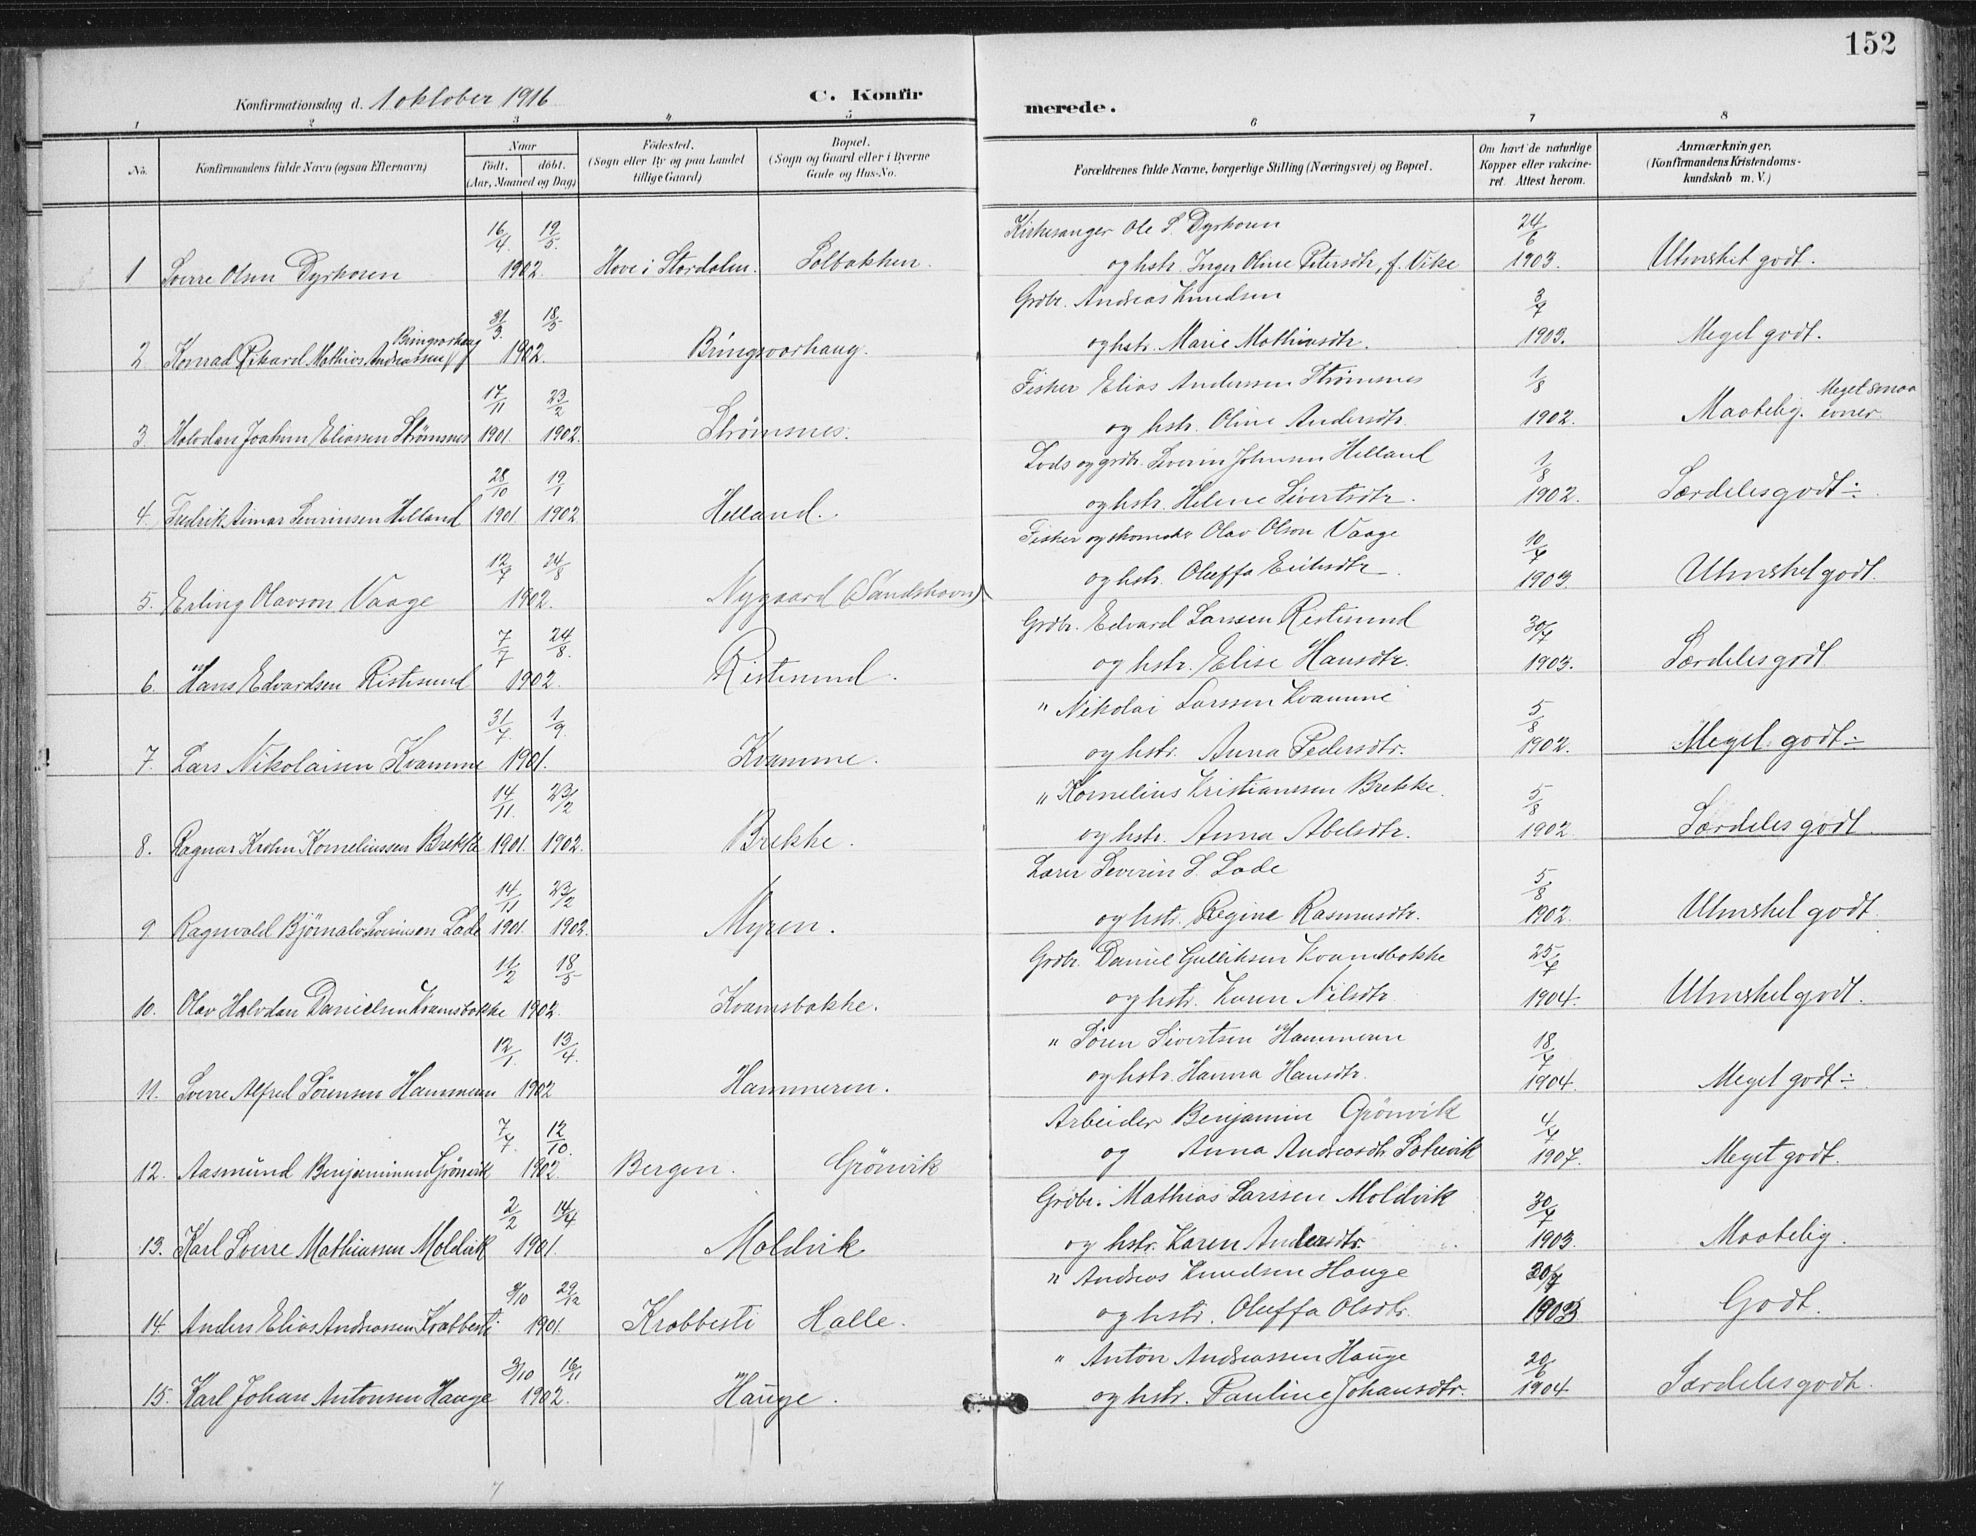 152
Konfirmationsdag d. 1 oktober 1916
C. Konfirmerede.
1 2 3 4 5 6 7 8
No. Konfirmandens fulde Navn (ogsaa Efternavn) Naar født. døbt. (Aar, Maaned og Dag) Fødested. (Sogn eller By og paa Landet tillige Gaard) Bopæl. (Sogn og Gaard eller i Byerne Gade og Hus-No. Forældrenes fulde Navne, borgerlige Stilling (Næringsvei) og Bopæl. Om havt de naturlige Kopper eller vakcineret. Attest herom. Anmærkninger, (Konfirmandens Kristendomskundskab m. V.)
16/4 19/5. Kirkesanger Ole S. Dyrkoren 24/6
1 Sverre Olsen Dyrkoren 1902. Hove i Stordalen. Solbakken. og hstr. Inger Oline Petersdtr, f. Vike 1903. Utmerket godt.
31/3. 18/5 Grdbr. Andreas Knudsen 3/7
2. Konrad Rikard Mathias Andreassen Bringsvorhaug 1902. Bringsvorhaug. og hstr. Marie Mathiasdtr. 1903. Meget godt.
17/11 23/2 Fisker Elias Anderssen Strømsnes 1/8
3. Halvdan Joakim Eliassen Strømsnes 1901 1902. Strømsnes. og hstr. Oline Andersdtr. 1902. Maatelig. Meget smaa evner
28/10 19/1 Lods og grdbr. Severin Johnsen Helland 1/8
4. Fredrik Severinsen Helland 1901 1902 Helland. og hstr. Helene Sivertsdtr. 1902. Særdeles godt ÷
12/7 24/8 Fisker og skomaker Olav Olson Vaage 10/7
5. Erling Olavson Vaage 1902. Nygaard (Sandshavn) og hstr. Oluffa Eriksdtr 1903. Utmerket godt.
7/7 24/8. Grdbr. Edvard Larssen Ristesund 30/7
6. Hans Edvardsen Ristesund 1902. Ristesund. og hstr. Elise Hansdtr. 1903. Særdeles godt
31/7. 1/9. " Nikolai Larssen Kvamme 5/8
7. Lars Nikolaisen Kvamme 1901. Kvamme. og hstr. Anna Pedersdtr. 1902. Meget godt ÷
14/11. 23/2 " Kornelius Kristianssen Brekke. 5/8
8. Ragnar Krohn Korneliussen Brekke 1901. 1902. Brekke. og hstr. Anna Abelsdtr. 1902 Særdeles godt.
14/11 23/2 Lærer Severin S. Lade 5/8
9. Ragnvald Bjørnalv Severinsen Lade 1901. 1902. Myren. og hstr. Regine Rasmusdtr. 1902. Utmerket godt.
11/2 18/5 Grdbr. Daniel Gulliksen Kvamsbakke 25/7
10. Olav Halvdan Danielsen Kvamsbakke 1902. Kvamsbakke. og hstr. Karen Nilsdtr 1904. Utmerket godt.
12/1. 13/4. " Søren Sivertsen Hammeren 18/7
11. Sverre Alfred Sørensen Hammeren 1902 Hammeren. og hstr. Hanna Hansdtr. 1904. Meget godt ÷
7/7. 12/10. Arbeider Benjamin Grönvik 4/7
12. Aasmund Benjaminsen Grönvik 1902 Bergen. Grönvik og Anna Andreasdtr 1907. Meget godt.
2/2 14/4 Grdbr. Mathias Larssen Moldvik 30/7
13. Karl Sverre Mathiassen Moldvik 1901. Moldvik og hstr. Karen Andersdtr. 1903. Maatelig.
9/10 29/12 " Andreas Knudsen Hauge
14. Anders Elias Andreassen Krabbesti 1901. Krabbesti Halle. og hstr. Oluffa Olsdtr. Godt.
" Anton Andreassen Hauge 20/6
15. Karl Johan Antonsen Hauge 1902. Hauge. og hstr. Pauline Johansdtr. 1904 Særdeles godt.